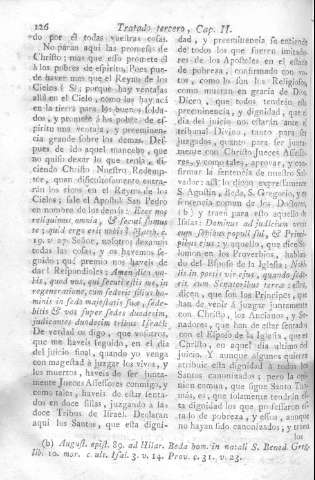 126 Tratado tercero, Cap. II.
do por él todas vuestras cosas.
No paran aqui las promesas de
Christo; mas que esso promete él
à los pobres de espiritu. Pues pue-
de haver mas que el Reyno de los
Cielos? Sí; porque hay ventajas
allá en el Cielo, como las hay acá
en la tierra para los buenos solda-
dos, y promete à los pobres de es-
piritu una ventaja, y preeminen-
cia grande sobre los demas. Des-
pues de ido aquel mancebo, que
no quiso dexar lo que tenia, di-
ciendo Christo Nuestro Redemp-
tor, quan dificultosamente entra-
rán los ricos en el Reyno de los
Cielos; sale el Apostol San Pedro
en nombre de los demás: Ecce nos
reliquimus omnia, & secuti sumus
te; quid ergo erit nobis? Matth. c.
19. v. 27. Señor, nosotros dexamos
todas las cosas, y os havemos se-
guido; qué premio nos haveis de
dar? Respondioles: Amen dico vo-
bis, quod vos, qui secuti estis me, in
regeneratione, cum sederit filius ho-
minis in sede majestatis suæ, sede-
bitis & vos super sedes duodecim,
judicantes duodecim tribus Israel:
De verdad os digo, que vosotros,
que me haveis seguido, en el dia
del juicio final, quando yo venga
con magestad à juzgar los vivos, y
los muertos, haveis de ser junta-
mente Jueces Assessores conmigo, y
como tales, haveis de estar senta-
dos en doce sillas, juzgando à las
doce Tribus de Israel. Declaran
aqui los Santos, que esta digni-
dad, y preeminencia se entiende
de todos los que fueren imitado-
res de los Apostoles en el estado
de pobreza, confirmado con vo-
tos, como lo son los Religiosos,
como mueran en gracia de Dios.
Dicen, que todos tendrán esta
preeminencia, y dignidad, que el
dia del juicio no estarán ante el
Tribunal Divino, tanto para ser
juzgados, quanto para ser junta-
mente con Christo Jueces Assesso-
res, y como tales, aprobar, y con-
firmar la sentencia de nuestro Sal-
vador: assi lo dicen expressamente
S. Agustin, Beda, S. Gregorio, y es
sentencia comun de los Doctores,
(b) y traen para esto aquello de
Isaías: Dominus ad judicium veniet
cum senibus populi sui, & Princi-
pibus ejus; y aquello, que dice Sa-
lomon en los Proverbios, hablan-
do del Esposo de la Iglesia: Nobi-
lis in portis vir ejus, quando sede-
rit cum Senatoribus terræ: estos,
dicen, que son los Principes, que
han de venir à juzgar juntamente
con Christo, los Ancianos, y Se-
nadores, que han de estar sentados
con el Esposo de la Iglesia, que es
Christo, en aquel dia ultimo del
juicio. Y aunque algunos quieren
atribuir esta dignidad à todos los
Santos canonizados; pero la opi-
nion comun, que sigue Santo Tho-
más, es, que solamente tendrán es-
ta dignidad los que professaron es-
tado de pobreza, y estos, aunque
no hayan sido canonizados, y traen
los
(b) August. epist. 89. ad Hilar. Beda hom. in natali S. Bened. Greg.
lib. 10. mor. c. ult. Isai. 3. v. 14. Prov. c. 31. v. 23.